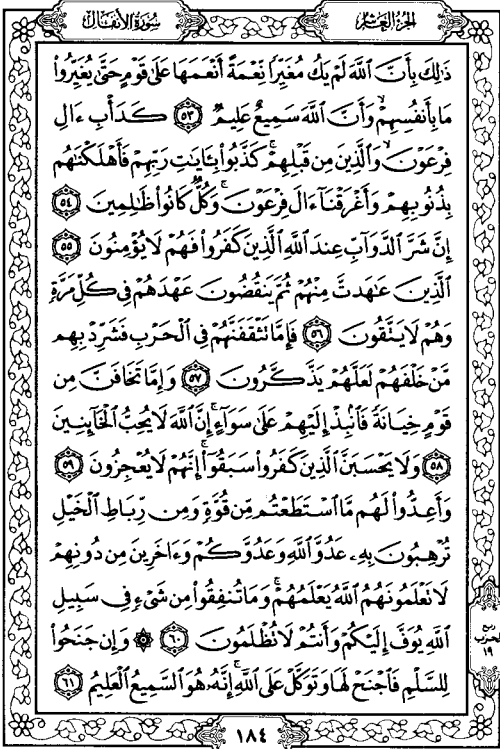 سورة الأنفال
الجزء العاشر
ذَٰلِكَ بِأَنَّ ٱللَّهَ لَمْ يَكُ مُغَيِّرًا نِّعْمَةً أَنْعَمَهَا عَلَىٰ قَوْمٍ حَتَّىٰ يُغَيِّرُوا۟
مَا بِأَنفُسِهِمْ ۙ وَأَنَّ ٱللَّهَ سَمِيعٌ عَلِيمٌ ٥٣ كَدَأْبِ ءَالِ
فِرْعَوْنَ ۙ وَٱلَّذِينَ مِن قَبْلِهِمْ ۚ كَذَّبُوا۟ بِـَٔايَٰتِ رَبِّهِمْ فَأَهْلَكْنَٰهُم
بِذُنُوبِهِمْ وَأَغْرَقْنَآ ءَالَ فِرْعَوْنَ ۚ وَكُلٌّ كَانُوا۟ ظَٰلِمِينَ ٥٤
إِنَّ شَرَّ ٱلدَّوَآبِّ عِندَ ٱللَّهِ ٱلَّذِينَ كَفَرُوا۟ فَهُمْ لَا يُؤْمِنُونَ ٥٥
ٱلَّذِينَ عَٰهَدتَّ مِنْهُمْ ثُمَّ يَنقُضُونَ عَهْدَهُمْ فِى كُلِّ مَرَّةٍ
وَهُمْ لَا يَتَّقُونَ ٥٦ فَإِمَّا تَثْقَفَنَّهُمْ فِى ٱلْحَرْبِ فَشَرِّدْ بِهِم
مَّنْ خَلْفَهُمْ لَعَلَّهُمْ يَذَّكَّرُونَ ٥٧ وَإِمَّا تَخَافَنَّ مِن
قَوْمٍ خِيَانَةً فَٱنۢبِذْ إِلَيْهِمْ عَلَىٰ سَوَآءٍ ۚ إِنَّ ٱللَّهَ لَا يُحِبُّ ٱلْخَآئِنِينَ
٥٨ وَلَا يَحْسَبَنَّ ٱلَّذِينَ كَفَرُوا۟ سَبَقُوٓا۟ ۚ إِنَّهُمْ لَا يُعْجِزُونَ ٥٩
وَأَعِدُّوا۟ لَهُم مَّا ٱسْتَطَعْتُم مِّن قُوَّةٍ وَمِن رِّبَاطِ ٱلْخَيْلِ
تُرْهِبُونَ بِهِۦ عَدُوَّ ٱللَّهِ وَعَدُوَّكُمْ وَءَاخَرِينَ مِن دُونِهِمْ
لَا تَعْلَمُونَهُمُ ٱللَّهُ يَعْلَمُهُمْ ۚ وَمَا تُنفِقُوا۟ مِن شَىْءٍ فِى سَبِيلِ
ٱللَّهِ يُوَفَّ إِلَيْكُمْ وَأَنتُمْ لَا تُظْلَمُونَ ٦٠ ۞ وَإِن جَنَحُوا۟
لِلسَّلْمِ فَٱجْنَحْ لَهَا وَتَوَكَّلْ عَلَى ٱللَّهِ ۚ إِنَّهُۥ هُوَ ٱلسَّمِيعُ ٱلْعَلِيمُ ٦١
ربع
حزب
١٩
١٨٤